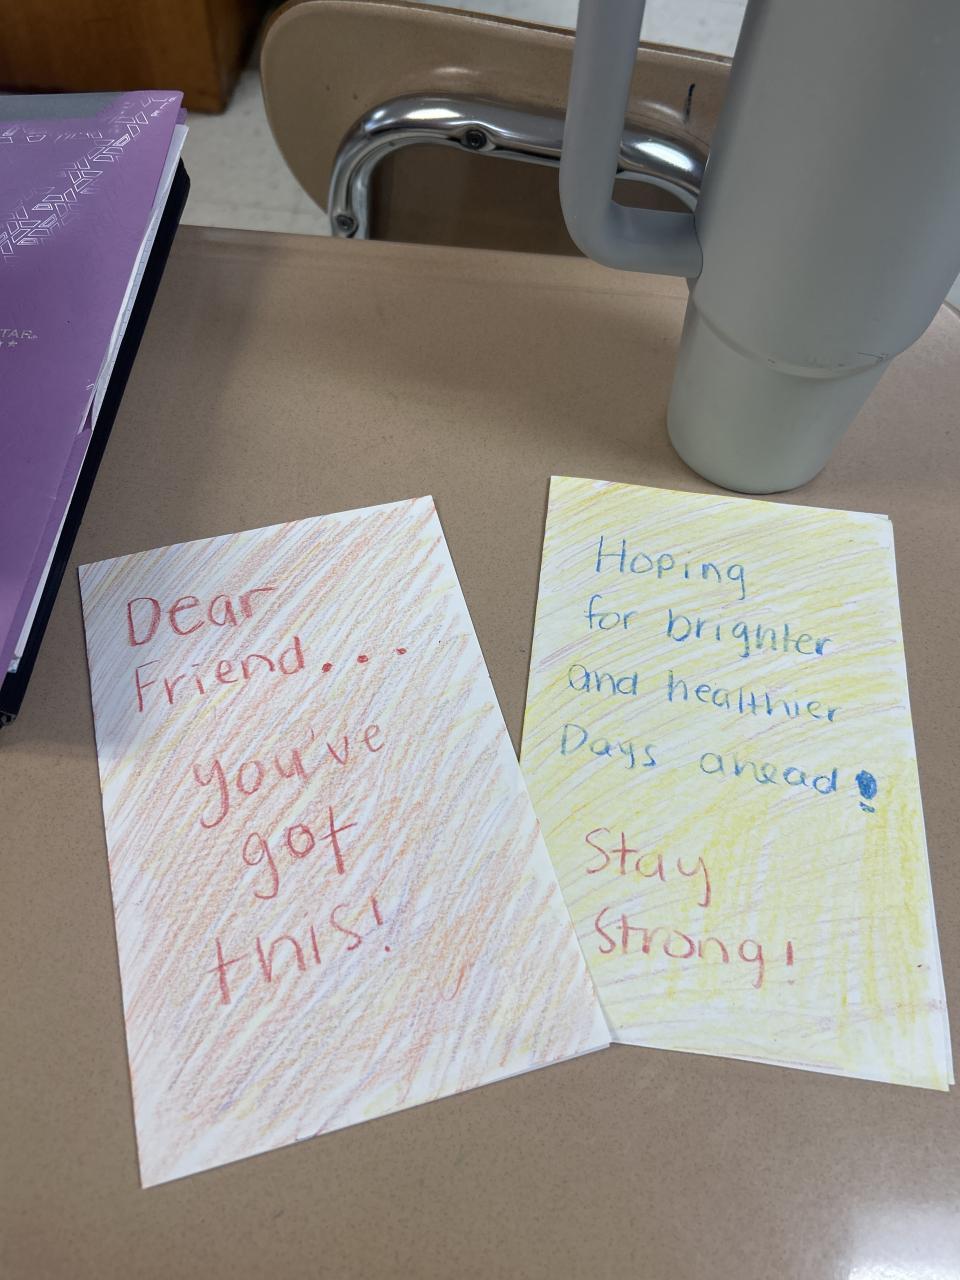 TAR
Dear
Friend...
you've
got
this!
Hoping
for brighter
and healthier
Days ahead!
Stay
Strong!